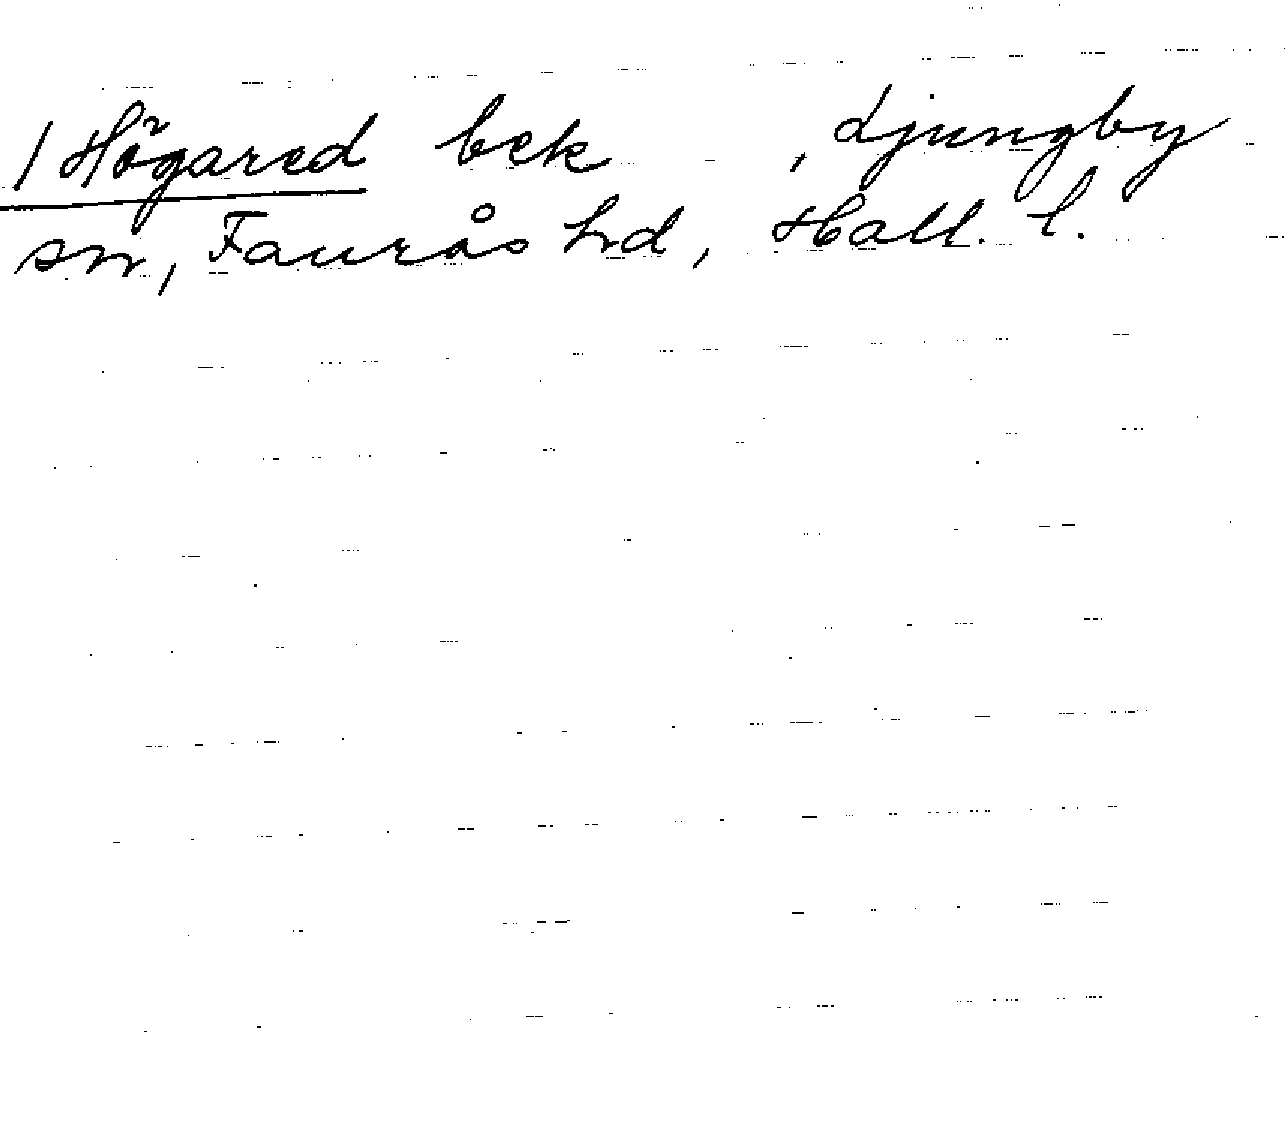 / Högared bek , Ljungby
sn, Faurås hd, Hall. l.